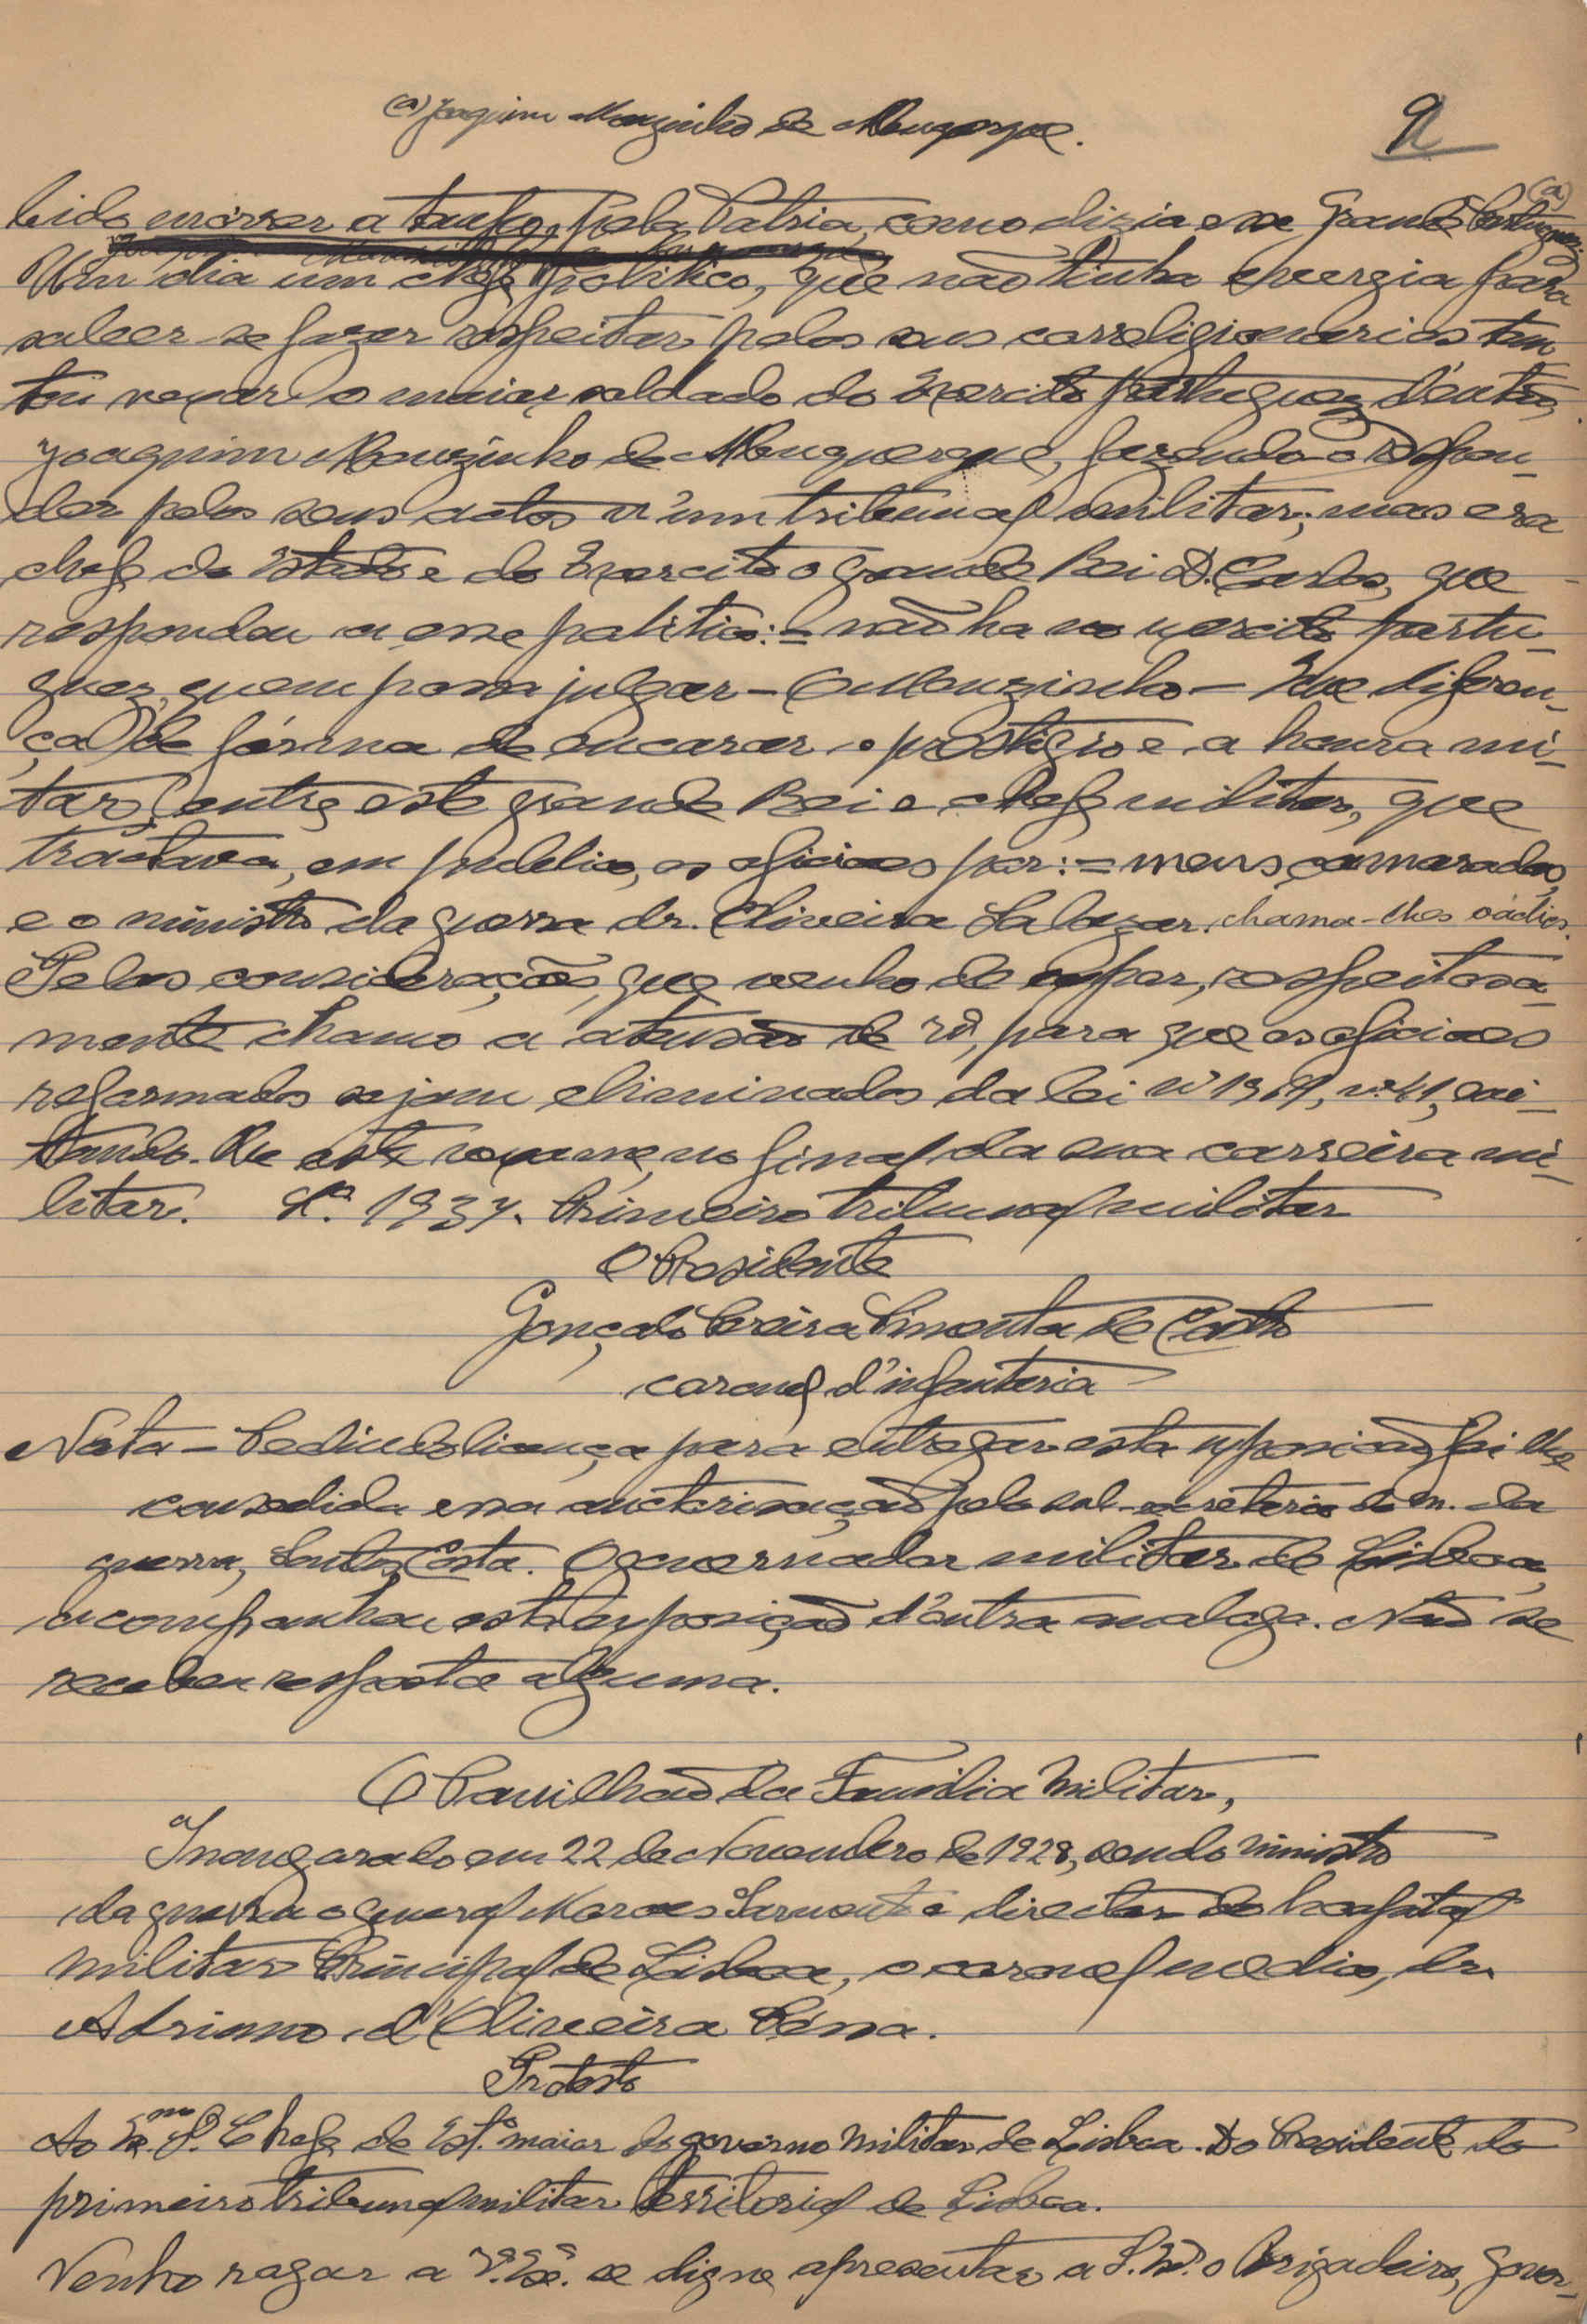 (a) Joaquim Mouzinho de Albuquerque.
9
bido morrer a tempo, pela Patria, como dizia esse grande Portuguez (a)
Um dia um chefe politico, que não tinha energia para
saber se fazer respeitar pelos seus correligionarios ten-
tou vexar o maior soldado do Exercito portuguez d'então,
Joaquim Mouzinho de Albuquerque, fazendo-o respon-
der pelos seus actos n'um tribunal militar; mas era
chefe do Estado e do Exercito o grande Rei D. Carlos, que
respondeu a esse politico: = não ha no exercito portu-
guez, quem possa julgar - O Mouzinho - Que diferen-
ça de fórma de encarar o prestigio e a honra mi-
tar, entre este grande Rei e chefe militar, que
tractava, em publico, os oficiaes por: = meus camaradas,
e o ministro da guerra dr. Oliveira Salazar, chama-lhes
Pelas considerações, que venho de expor, respeitosa-
mente chamo a atensão de V., para que os oficiaes
reformados sejam eliminados da lei nº 1961, evi-
tando-lhe este vexame, no final da sua carreira mi-
litar. Lx.ª 1937. Primeiro tribunal militar
O Presidente
Gonçalo Pereira Pimenta de Castro
coronel d'infanteria
Nota - Pedindo licença para entregar esta exposição, foi lhe
consedida essa auctorisação pelo sub-secretario do m. da
guerra, Santos Costa. O governador militar de Lisboa,
acompanhou esta exposição d'outra analoga. Não se
recebeu resposta alguma.
O Pavilhão da Familia Militar,
Inaugurado em 22 de Novembro de 1928, sendo ministro
da guerra o general Moraes Sarmento e director do hospital
militar Principal de Lisboa, o coronel medico, dr.
Adriano d'Oliveira Pessa.
Protesto
Ao Ex.mo Sr. Chefe de Est.º maior do governo militar de Lisboa. Do Presidente do
primeiro tribunal militar territorial de Lisboa.
Venho rogar a V. Ex.ª se digne apresentar a S. Ex.ª o Brigadeiro, gover-